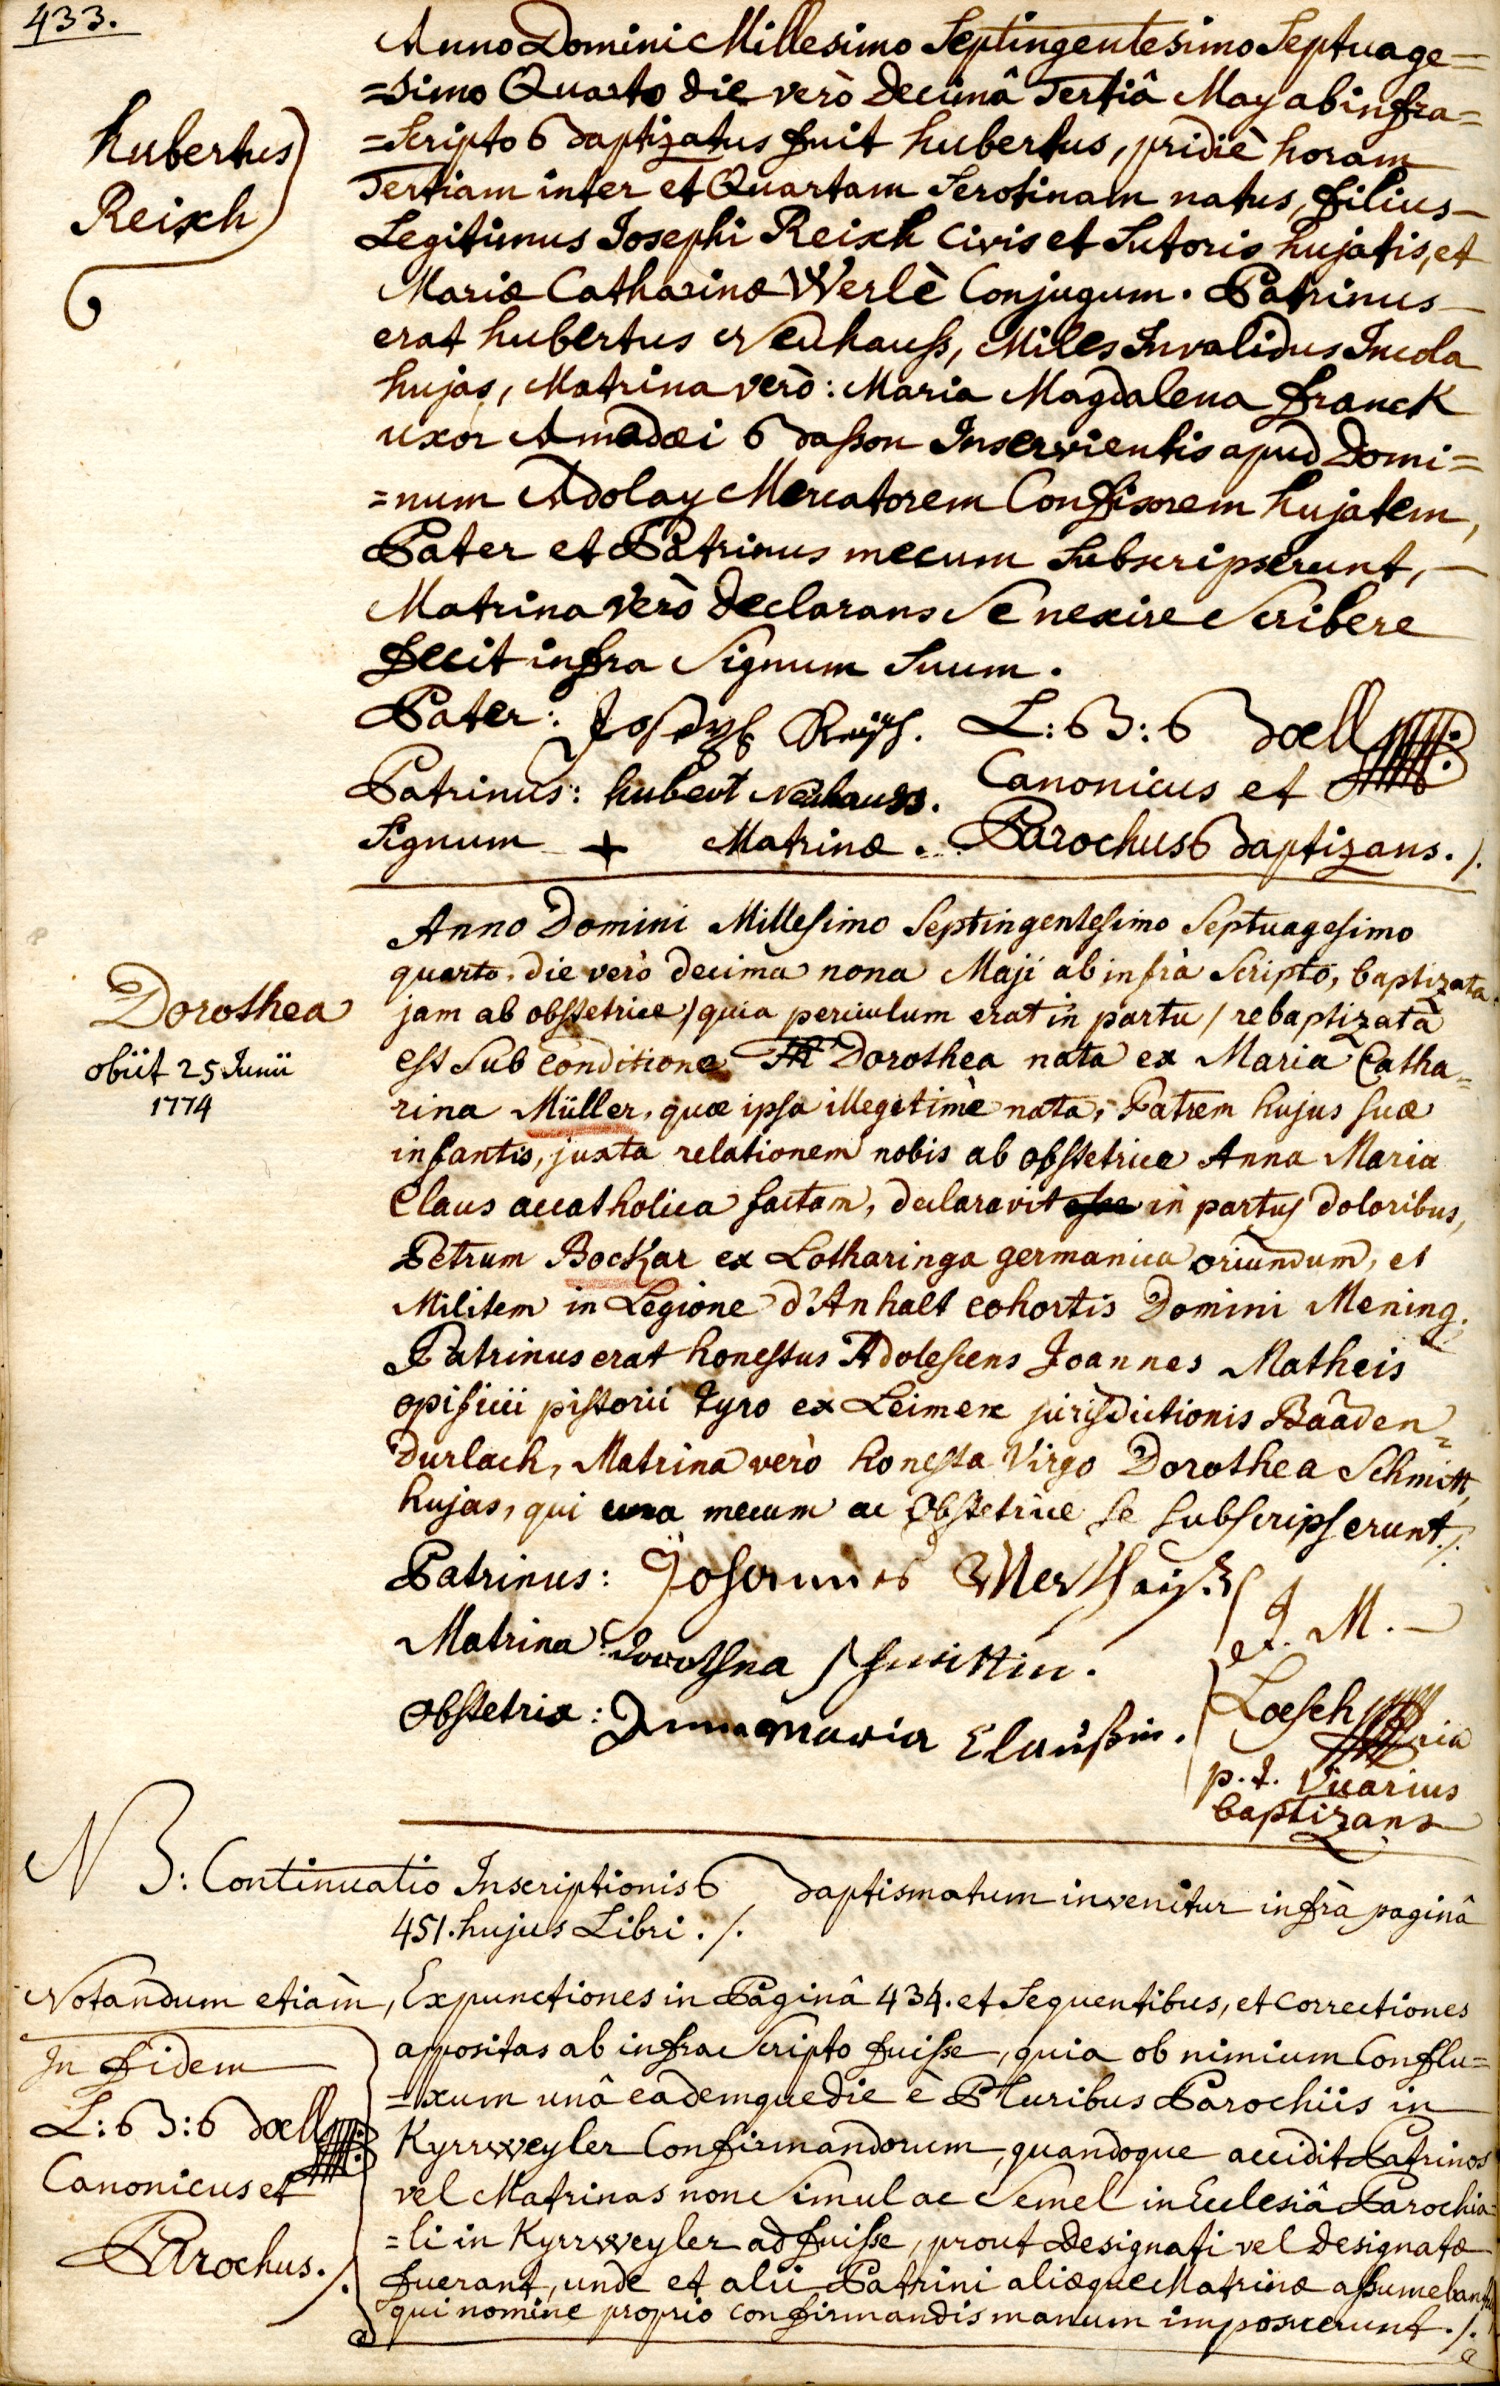 433.
Anno Domini Millesimo Septingentesimo Septuage=
=simo Quarto die verò Decimâ Tertiâ May ab infra=
=Scripto Baptizatus fuit hubertus, pridiè horam
Tertiam inter et Quartam Serotinam natus, filius
Legitimus Josephi Reixh Civis et Sutoris hujatis, et
Mariæ Catharinæ Werlè Conjugum. Patrinus
erat hubertus Neuhauss, Miles Invalidus Incola
hujas, Matrina verò: Maria Magdalena franck
uxor Amadæi Basson Inservientis apud Domi=
=num Adolay Mercatorem Confisorem hujatem,
Pater et Patrinus mecum Subscripserunt,
Matrina verò Declarans Se nexire Scribere
fecit infra Signum Suum.
hubertus
Reixh
Pater: Joseph Reixh. L: B: Boell
Patrinus: hubert Neuhauss. Canonicus et
Signum + Matrinæ. Parochus Baptizans. /.
Anno Domini Millesimo Septingentesimo Septuagesimo
quarto. die verò decima nona Maji ab infrà Scripto, baptizata
jam ab obstetrice / quia periculum erat in partu / rebaptizata
est Sub conditione Dorothea nata ex Maria Catha=
rina Müller, quæ ipsa illegitimè nata, Patrem hujus suæ
infantis, juxta relationem nobis ab obstetrice Anna Maria
Claus accatholica factam, declaravit esse in partus doloribus,
Petrum Bockar ex Lotharinga germanica oriundum, et
Militem in Legione d'Anhalt cohortis Domini Mening.
Patrinus erat honestus Adolescens Joannes Matheis
opificii pistorii Tyro ex Leimen jurisdictionis Baaden=
Durlach, Matrina verò honesta Virgo Dorothea Schmitt,
hujas, qui una mecum ac Obstetrice se subscripserunt /.
Dorothea
obiit 25 Junii
1774
Patrinus: Johannes
Matrina: Dorothea Schmittin.
Obstetrix: Anna Maria Claussin.
J. M.
Loesch
p. t. Vicarius
baptizans
NB: Continuatio Inscriptionis Baptismatum invenitur infrà paginâ
451. hujus Libri. /.
Notandum etiàm, Expunctiones in Paginâ 434. et Sequentibus, et Correctiones
appositas ab infra Scripto fuisse, quia ob nimium Conflu=
=xum unâ eademque die è Pluribus Parochiis in
Kyrrweyler Confirmandorum, quandoque accidit Patrinos
vel Matrinas non Simul ac Semel in Ecclesiâ Parochia=
=li in Kyrrweyler adfuisse, prout Designati vel Designatæ
fuerant, unde et alii Patrini aliæque Matrinæ assumebantur
qui nomine proprio confirmandis manum imposuerunt. /.
In fidem
L: B: Boell
Canonicus et
Parochus. /.